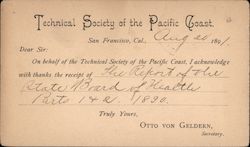 Technical Society of the Pacific Coast.
San Francisco, Cal., Aug 20 1891.
Dear Sir:
On behalf of the Technical Society of the Pacific Coast, I acknowledge
with thanks the receipt of The Report of the
State Board of Health
Parts 1 & 2. 1890.
Truly Yours,
OTTO VON GELDERN,
Secretary.